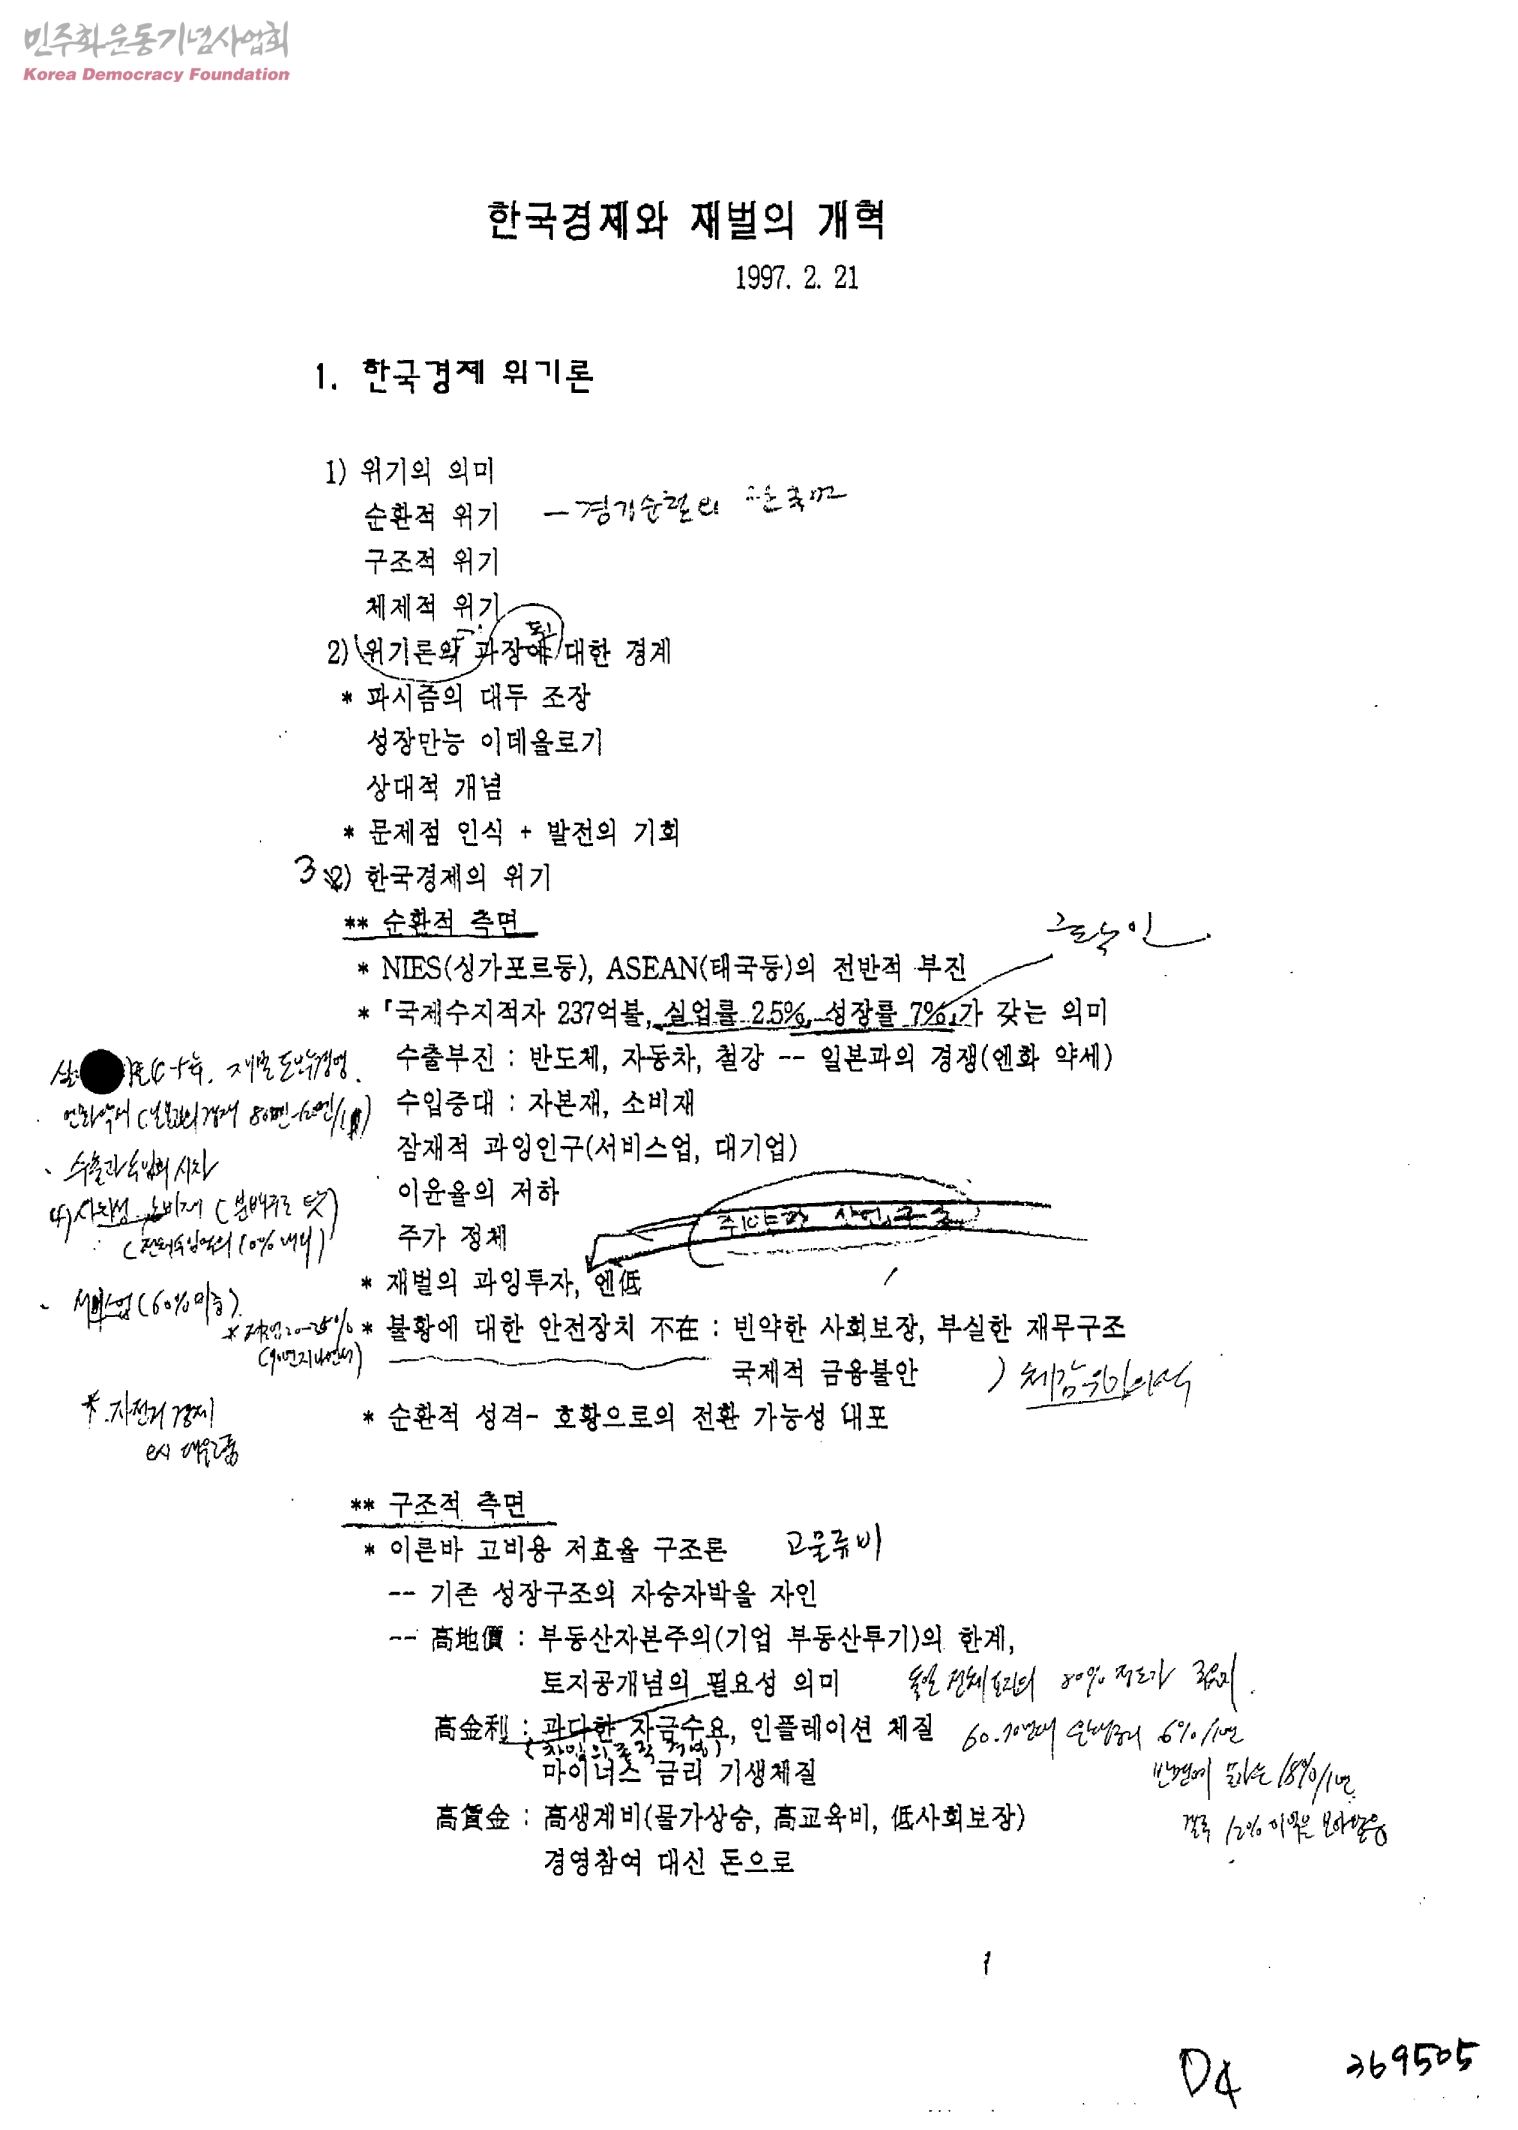 민주화운동기념사업회
Korea Democracy Foundation
한국경제와 재벌의 개혁
1997. 2. 21
1. 한국경제 위기론
1) 위기의 의미
순환적 위기 - 경기순환의
구조적 위기
체제적 위기
2) 위기론의 과장에 대한 경계
* 파시즘의 대두 조장
성장만능 이데올로기
상대적 개념
* 문제점 인식 + 발전의 기회
3 2) 한국경제의 위기
** 순환적 측면
* NIES(싱가포르등), ASEAN(태국등)의 전반적 부진
* 「국제수지적자 237억불, 실업률 2.5%, 성장률 7%」가 갖는 의미
수출부진 : 반도체, 자동차, 철강 -- 일본과의 경쟁(엔화 약세)
수입증대 : 자본재, 소비재
잠재적 과잉인구(서비스업, 대기업)
이윤율의 저하
주가 정체
취약한 산업구조
* 재벌의 과잉투자, 엔低
* 불황에 대한 안전장치 不在 : 빈약한 사회보장, 부실한 재무구조
국제적 금융불안 ) 체감위기의식
* 순환적 성격- 호황으로의 전환 가능성 내포
수출과 수입의 시차
서비스업(60% 비중)
* 자전거 경제
** 구조적 측면
* 이른바 고비용 저효율 구조론 고물류비
-- 기존 성장구조의 자승자박을 자인
-- 高地價 : 부동산자본주의(기업 부동산투기)의 한계,
토지공개념의 필요성 의미 80% 정도가
高金利 : 과다한 자금수요, 인플레이션 체질 60.70년대 6%/1년
마이너스 금리 기생체질 반면에 18%/1년
高賃金 : 高생계비(물가상승, 高교육비, 低사회보장) 결국 12%
경영참여 대신 돈으로
1
D4
369505